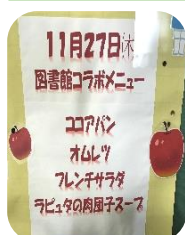 11月27日木
図書館コラボメニュー
ココアパン
オムレツ
フレンチサラダ
ラピュタの肉団子スープ